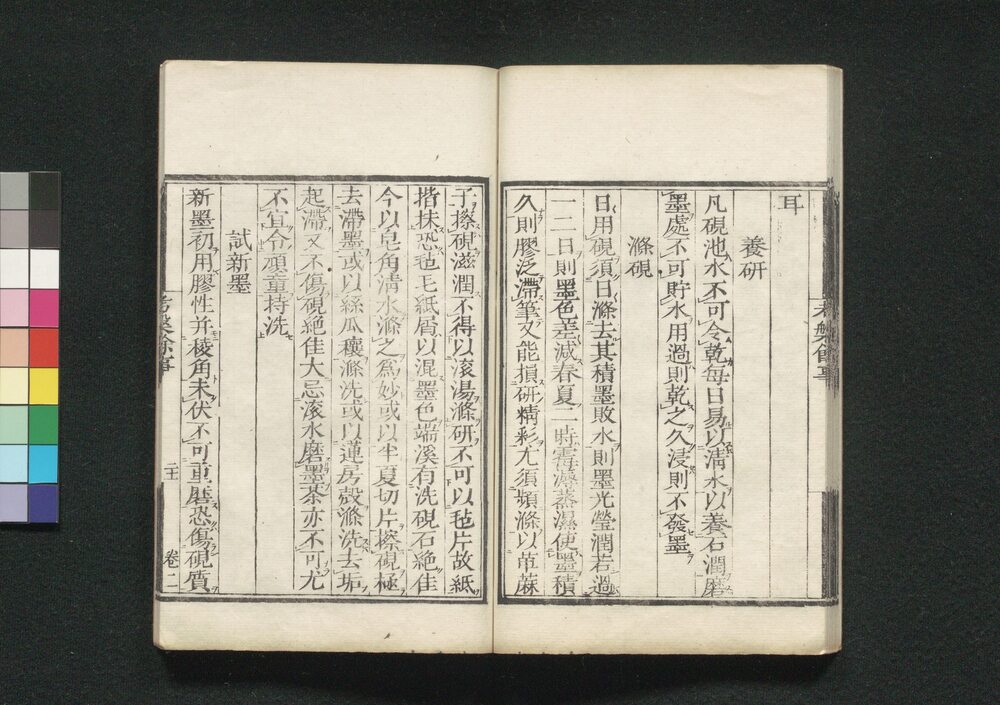 耳
養研
凡硯池水不可令乾每日易以清水以養石潤磨
墨處不可貯水用過則乾之久浸則不發墨
滌硯
日用硯須日滌去其積墨敗水則墨光瑩潤若過
一二日則墨色差減春夏二時霉溽蒸濕使墨積
久則膠泛滯筆又能損研精彩尤須頻滌以萆蔴
子擦硯滋潤不得以滾湯滌研不可以毡片故紙
揩抹恐毡毛紙屑以混墨色端溪有洗硯石絶佳
今以皂角清水滌之爲妙或以半夏切片擦硯極
去滯墨或以絲瓜穰滌洗或以蓮房殼滌洗去垢
起滯又不傷硯絶佳大忌滾水磨墨茶亦不可尤
不宜令頑童持洗
試新墨
新墨初用膠性并稜角未伏不可重磨恐傷硯質
考槃餘事
卷二